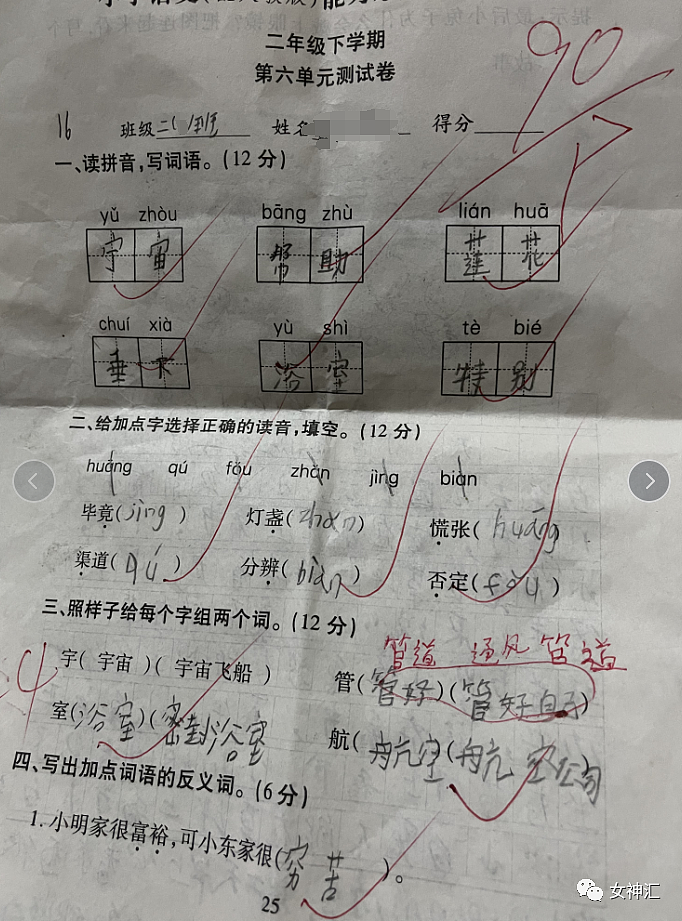 二年级下学期
第六单元测试卷
90
16 班级二(1)班 姓名 得分
一、读拼音,写词语。(12分)
yǔ zhòu bāng zhù lián huā
宇宙 帮助 莲花
chuí xià yù shì tè bié
垂下 浴室 特别
二、给加点字选择正确的读音,填空。(12分)
huāng qú fǒu zhǎn jìng biàn
毕竟(jìng) 灯盏(zhǎn) 慌张(huāng)
渠道(qú) 分辨(biàn) 否定(fǒu)
三、照样子给每个字组两个词。(12分)
管道 通风管道
宇(宇宙)(宇宙飞船) 管(管好)(管好自己)
-4
室(浴室)(密封浴室 航(航空(航空公司
四、写出加点词语的反义词。(6分)
1. 小明家很富裕,可小东家很(穷苦)。
25
女神汇